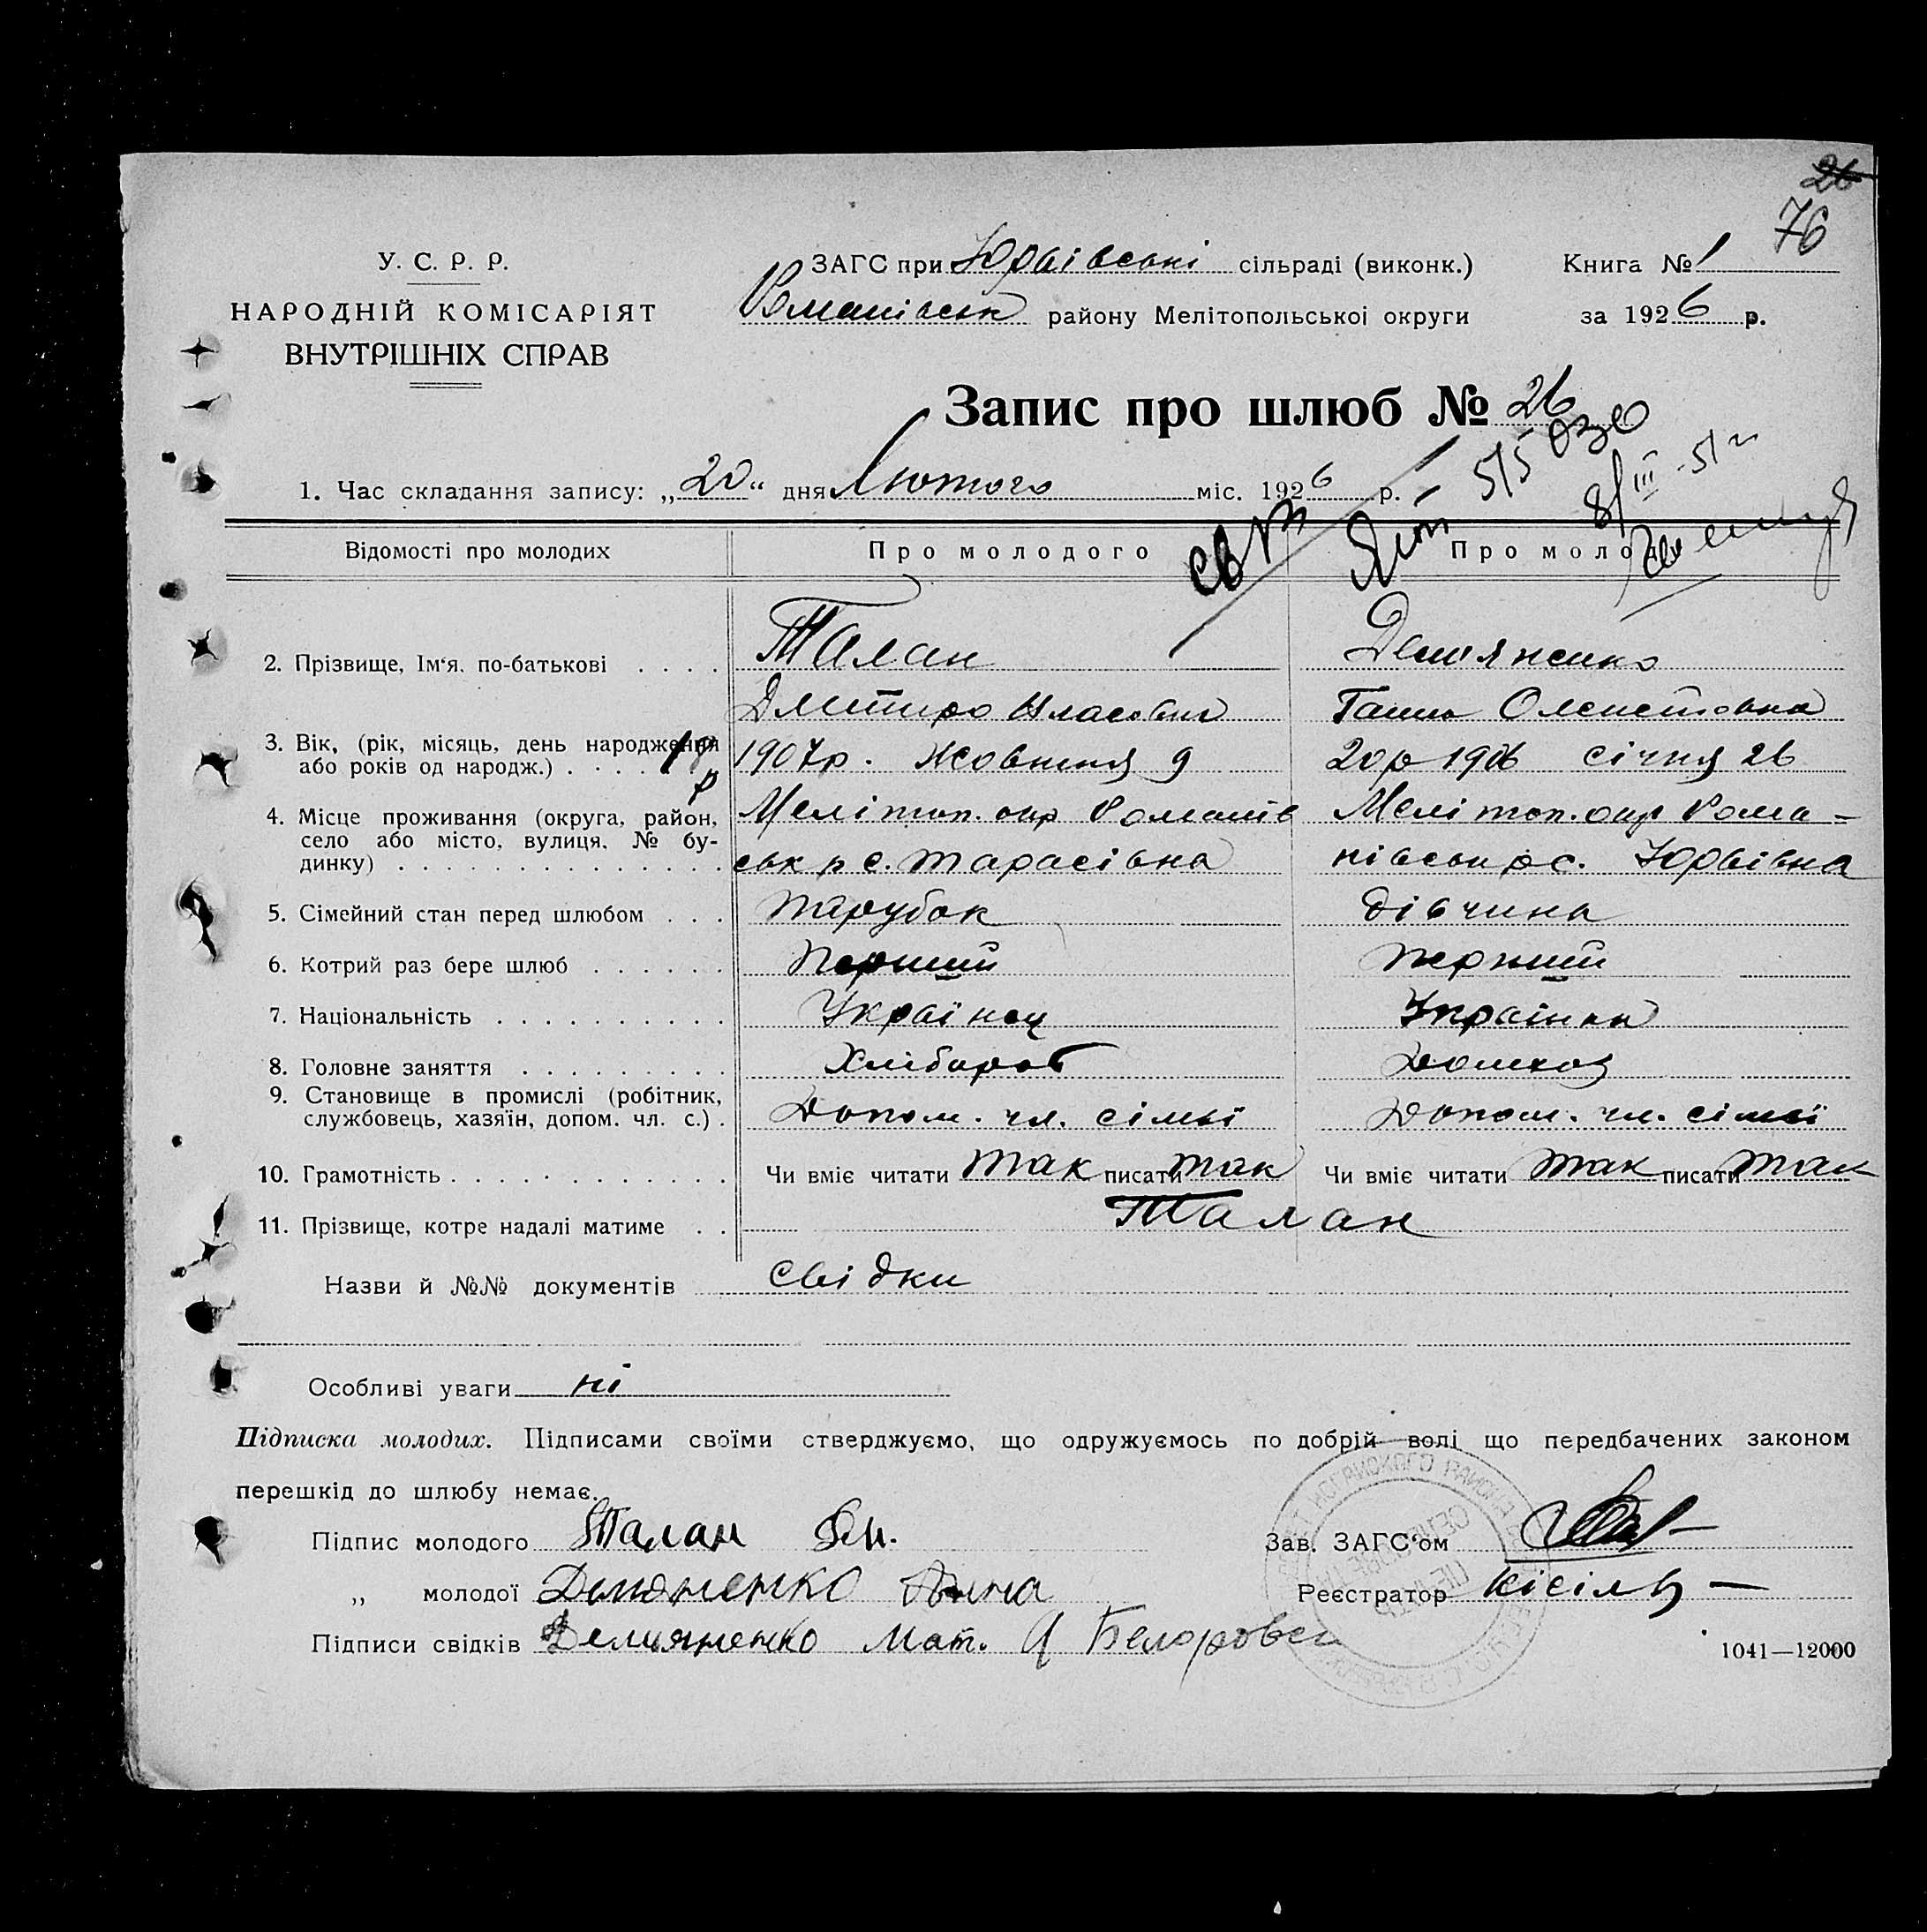 26
76
У. С. Р. Р.
НАРОДНІЙ КОМІСАРІЯТ
ВНУТРІШНІХ СПРАВ
ЗАГС при Юрьівські сільраді (виконк.)
Романівськ району Мелітопольськоі округи
Книга № 1
за 1926 р.
Запис про шлюб № 26
1. Час складання запису: „20“ дня Лютого міс. 1926 р.
515030
8/III-51
Відомості про молодих
Про молодого
Про моло
2. Прізвище, Ім'я. по-батькові . . . . Талан Демяненко
Дмитро Власович Ганна
3. Вік, (рік, місяць, день народження 1907р. Жовтня 9 20р 1906 січня 26
або років од народж.) . . . . 18 р
4. Місце проживання (округа, район, Мелітоп. окр Романів Мелітоп. окр Рома-
село або місто, вулиця, № бу-
динку) . . . . . . . . . . . . . . ськ р с. Тарасівна нівськ р с. Юрьівна
5. Сімейний стан перед шлюбом . . . парубок дівчина
6. Котрий раз бере шлюб . . . . . . Перший перший
7. Національність . . . . . . . . . . Українец Українка
8. Головне заняття . . . . . . . . . Хлібороб
9. Становище в промислі (робітник,
службовець, хазяїн, допом. чл. с.) . Допом. чл. сімьі Допом. чл. сімьї
10. Грамотність . . . . . . . . . . . . Чи вміє читати так писати так Чи вміє читати так писати так
11. Прізвище, котре надалі матиме . . Талан
Назви й №№ документів свідки
Особливі уваги ні
Підписка молодих. Підписами своїми стверджуємо, що одружуємось по добрій волі що передбачених законом
перешкід до шлюбу немає.
Підпис молодого Талан Дм.
Зав. ЗАГС'ом
„ молодої Демяненко Анна
Реєстратор Кісіль
Підписи свідків Демяненко Мат.
1041—12000